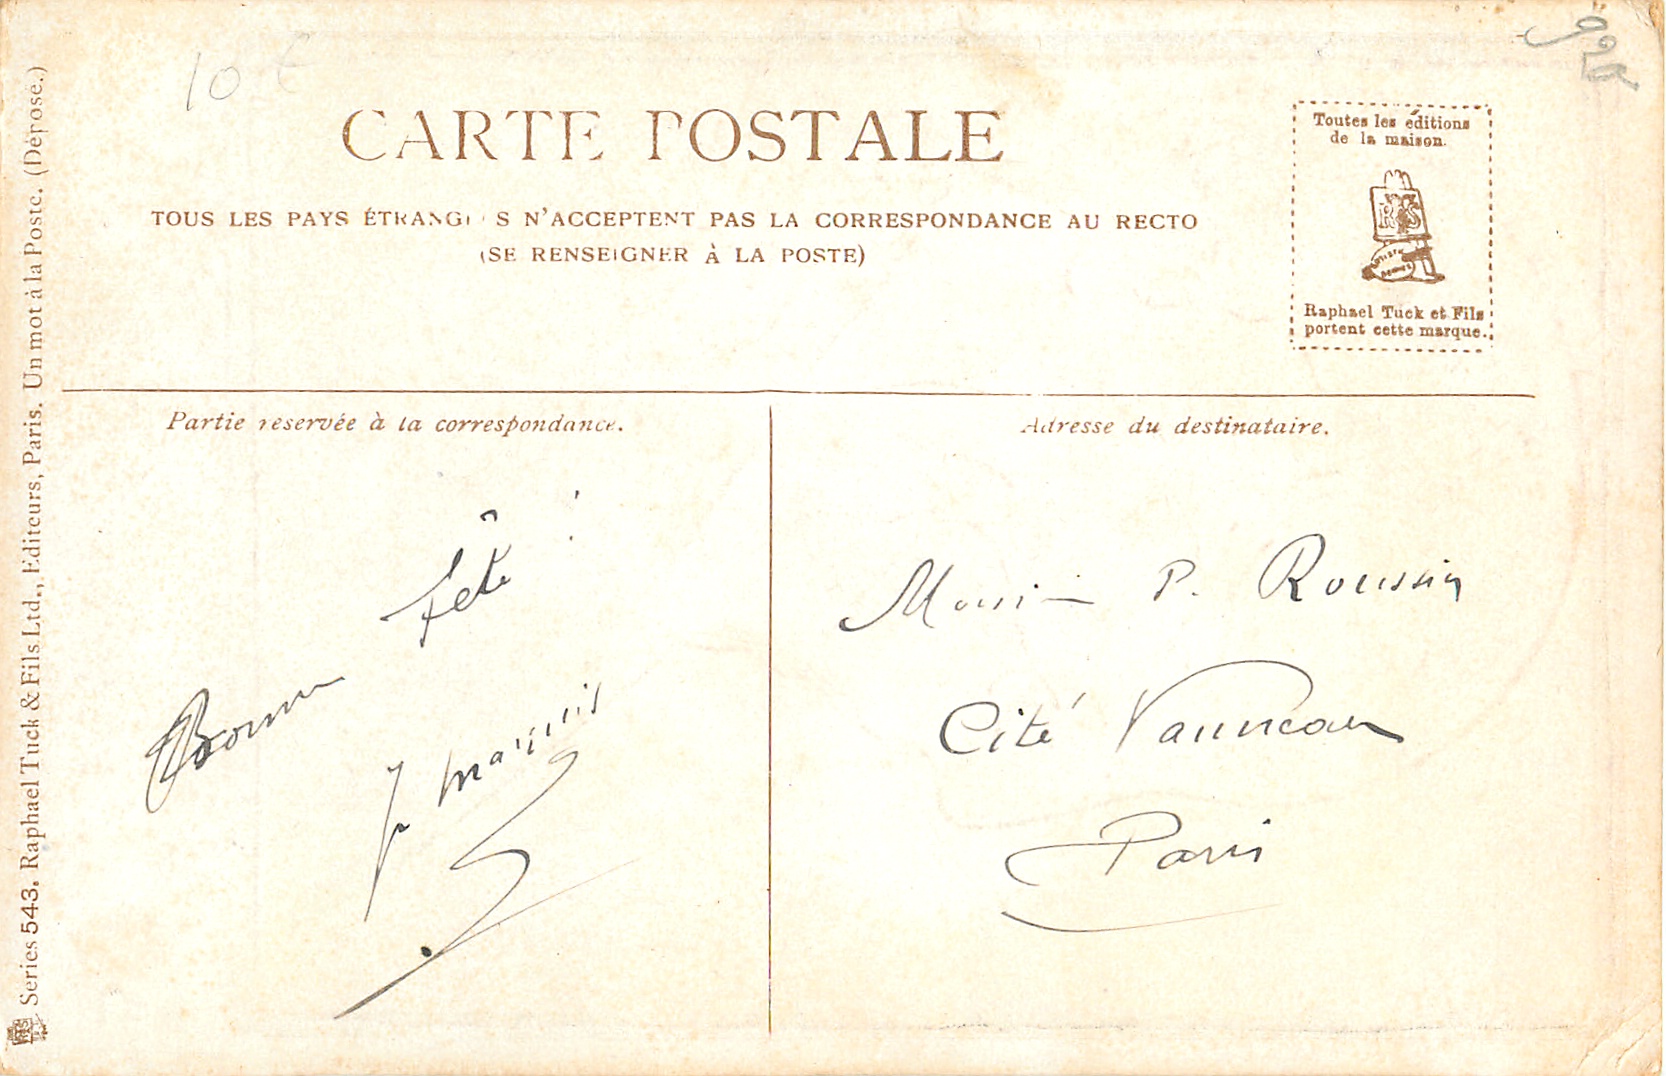 10 €
CARTE POSTALE
TOUS LES PAYS ÉTRANGERS N'ACCEPTENT PAS LA CORRESPONDANCE AU RECTO
(SE RENSEIGNER À LA POSTE)
Toutes les éditions
de la maison
Raphael Tuck et Fils
portent cette marque.
Series 543. Raphael Tuck & Fils Ltd., Editeurs, Paris. Un mot à la Poste. (Déposé.)
Partie réservée à la correspondance.
Bonne fête !
Adresse du destinataire.
Monsieur P. Roussin
Cité Vanneau
Paris